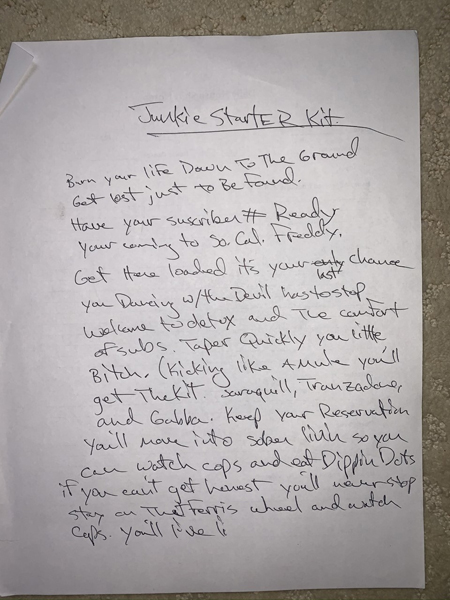 Junkie StartER Kit.
Burn your life Down To The Ground
Get lost just to Be found.
Have your suscriber # Ready
your coming to So. Cal. Freddy.
Get Here loaded it's your only last chance
you Dancing w/ the Devil has to stop
welcome to detox and The comfort
of subs. Taper Quickly you little
Bitch. (Kicking like A mule you'll
get The Kit. Saraquill, Tranzadone,
and Gabba. Keep your Reservation
you'll move into sober so you
can watch cops and eat Dippin Dots
if you can't get honest you'll never stop
stay on The Ferris wheel and watch
Cops. you'll live